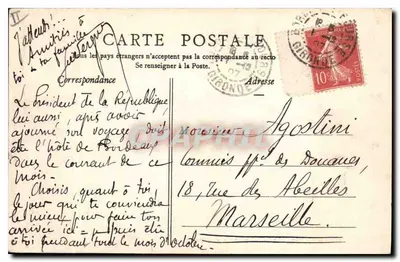 J'attends!...
Amitiés à
toi & ta famille
CARTE POSTALE
Tous les pays étrangers n'acceptent pas la correspondance au recto
Se renseigner à la Poste.
Correspondance
Adresse
Le Président de la République,
lui aussi, après avoir
ajourné son voyage doit
être l'hôte de Bordeaux
dans le courant de ce
mois.
Choisis, quant à toi,
le jour qui te conviendra
le mieux pour faire ton
arrivée ici - puis être
à toi pendant tout le mois d'Octobre
Monsieur Agostini
Commis ppal de Douanes,
18, Rue des Abeilles
Marseille.
GIRONDE
GIRONDE
10